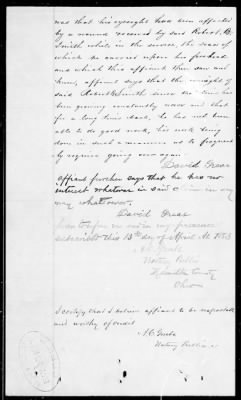 was that his eyesight had been affected
by a wound received by said Robert B.
Smith while in the service, the scar of
which he carried upon his forehead
and which this affiant then saw upon
him, affiant says that the eyesight of
said Robert B Smith since the time has
been growing constantly worse and that
for a long time back, he has not been
able to do good work, his work being
done in such a manner as to frequent
ly require going over again.
David Gras
affiant further says that he has no
interest whatever in said claim in any
way whatsoever.
David Gras
Sworn to before me and in my presence
subscribed this 15th day of April A. D.
Notary Public
County
Ohio
I certify that I believe affiant to be respectable
and worthy of credit
Notary Public